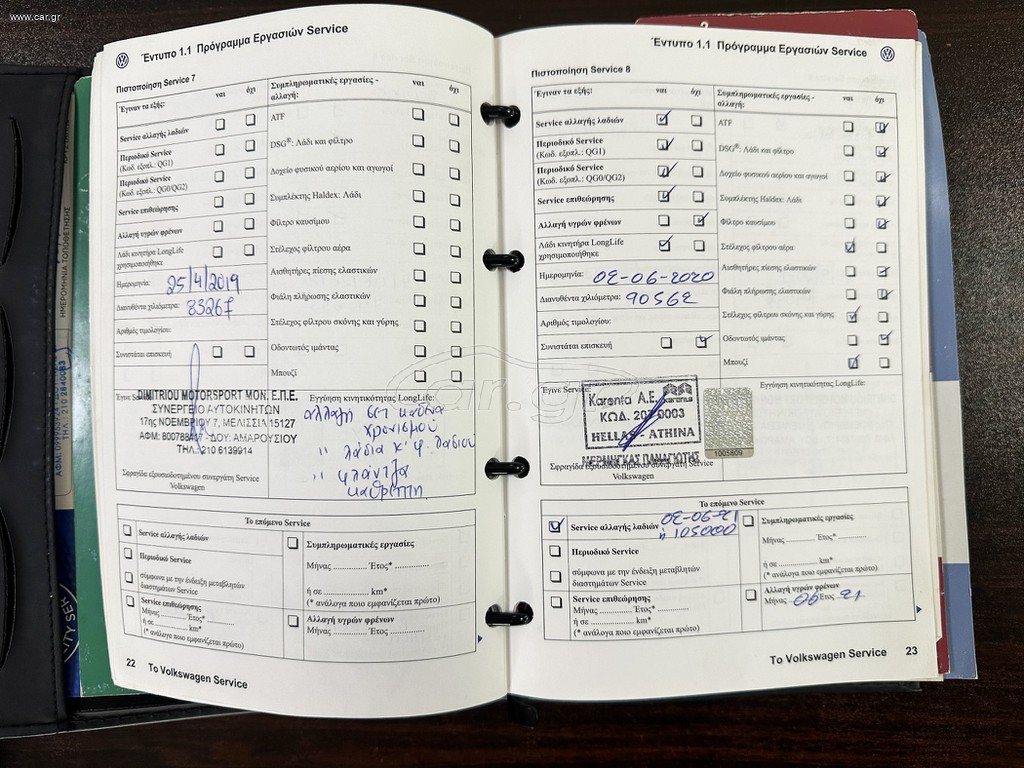 www.car.gr
Έντυπο 1.1 Πρόγραμμα Εργασιών Service
Πιστοποίηση Service 7
Έγιναν τα εξής: ναι όχι
Service αλλαγής λαδιών
Περιοδικό Service
(Κωδ. εξοπλ.: QG1)
Περιοδικό Service
(Κωδ. εξοπλ.: QG0/QG2)
Service επιθεώρησης
Αλλαγή υγρών φρένων
Λάδι κινητήρα LongLife
χρησιμοποιήθηκε
Ημερομηνία: 25/4/2019
Διανυθέντα χιλιόμετρα: 83267
Αριθμός τιμολογίου:
Συνιστάται επισκευή
Συμπληρωματικές εργασίες -
αλλαγή: ναι όχι
ATF
DSG®: Λάδι και φίλτρο
Δοχείο φυσικού αερίου και αγωγοί
Συμπλέκτης Haldex: Λάδι
Φίλτρο καυσίμου
Στέλεχος φίλτρου αέρα
Αισθητήρες πίεσης ελαστικών
Φιάλη πλήρωσης ελαστικών
Στέλεχος φίλτρου σκόνης και γύρης
Οδοντωτός ιμάντας
Μπουζί
Έγινε Service
DIMITRIOU MOTORSPORT ΜΟΝ. Ε.Π.Ε.
ΣΥΝΕΡΓΕΙΟ ΑΥΤΟΚΙΝΗΤΩΝ
17ης ΝΟΕΜΒΡΙΟΥ 7, ΜΕΛΙΣΣΙΑ 15127
ΑΦΜ: 800788407 - ΔΟΥ: ΑΜΑΡΟΥΣΙΟΥ
ΤΗΛ.: 210 6139914
Σφραγίδα εξουσιοδοτημένου συνεργάτη Service
Volkswagen
Εγγύηση κινητικότητας LongLife:
αλλαγή σετ καδένα
χρονισμού
" λάδια κ' φ. λαδιού
" φλάντζα
καθρέπτη
Το επόμενο Service
Service αλλαγής λαδιών
Περιοδικό Service
σύμφωνα με την ένδειξη μεταβλητών
διαστημάτων Service
Service επιθεώρησης
Μήνας ......... Έτος* .........
ή σε ............ km*
(* ανάλογα ποιο εμφανίζεται πρώτο)
Συμπληρωματικές εργασίες
Μήνας ............ Έτος* ............
ή σε ................ km*
(* ανάλογα ποιο εμφανίζεται πρώτο)
Αλλαγή υγρών φρένων
Μήνας ............ Έτος* ............
22 Το Volkswagen Service
Έντυπο 1.1 Πρόγραμμα Εργασιών Service
Πιστοποίηση Service 8
Έγιναν τα εξής: ναι όχι
Service αλλαγής λαδιών
Περιοδικό Service
(Κωδ. εξοπλ.: QG1)
Περιοδικό Service
(Κωδ. εξοπλ.: QG0/QG2)
Service επιθεώρησης
Αλλαγή υγρών φρένων
Λάδι κινητήρα LongLife
χρησιμοποιήθηκε
Ημερομηνία: 02-06-2020
Διανυθέντα χιλιόμετρα: 90562
Αριθμός τιμολογίου:
Συνιστάται επισκευή
Συμπληρωματικές εργασίες -
αλλαγή: ναι όχι
ATF
DSG®: Λάδι και φίλτρο
Δοχείο φυσικού αερίου και αγωγοί
Συμπλέκτης Haldex: Λάδι
Φίλτρο καυσίμου
Στέλεχος φίλτρου αέρα
Αισθητήρες πίεσης ελαστικών
Φιάλη πλήρωσης ελαστικών
Στέλεχος φίλτρου σκόνης και γύρης
Οδοντωτός ιμάντας
Μπουζί
Έγινε Service:
Karenta A.E. karenta
ΚΩΔ. 207 0003
HELLAS - ATHINA
ΜΕΡΜΗΓΚΑΣ ΠΑΝΑΓΙΩΤΗΣ
1005809
Σφραγίδα εξουσιοδοτημένου συνεργάτη Service
Volkswagen
Εγγύηση κινητικότητας LongLife:
Το επόμενο Service
Service αλλαγής λαδιών 02-06-21
ή 105000
Περιοδικό Service
σύμφωνα με την ένδειξη μεταβλητών
διαστημάτων Service
Service επιθεώρησης
Μήνας ......... Έτος* .........
ή σε ............ km*
(* ανάλογα ποιο εμφανίζεται πρώτο)
Συμπληρωματικές εργασίες
Μήνας ............ Έτος* ............
ή σε ................ km*
(* ανάλογα ποιο εμφανίζεται πρώτο)
Αλλαγή υγρών φρένων
Μήνας 06 Έτος 21
Το Volkswagen Service 23
car.gr